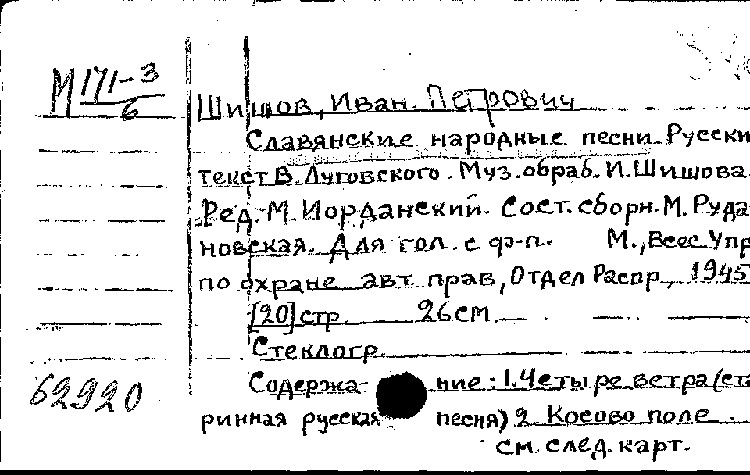 М 171-3
6
Шишов, Иван Петрович
Славянские народные песни. Русски
текст В. Луговского. Муз. обраб. И. Шишова.
Ред. М. Иорданский. Сост. сборн. М. Руда
новская. Для гол. с ф-п. М., Всес. Упр
по охране авт. прав, Отдел Распр., 1945
[20] стр. 26 см.
Стеклогр.
Содержание: 1. Четыре ветра (ста
ринная русская песня) 2. Косово поле.
см. след. карт.
62920